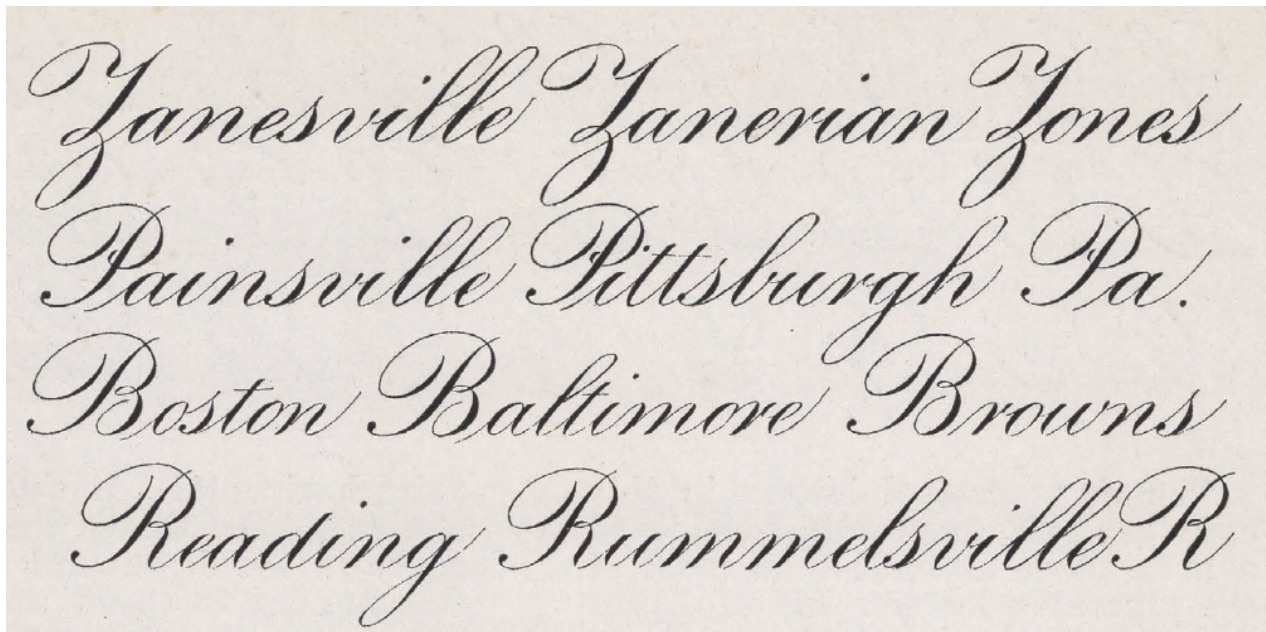 Zanesville Zanerian Zones
Painsville Pittsburgh Pa.
Boston Baltimore Browns
Reading Rummelsville R